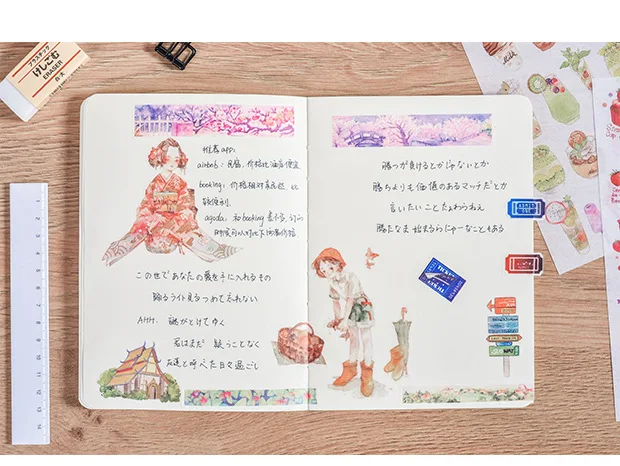 プラスチック
けしごむ
ERASER
推荐app:
airbnb: 民宿，价格比酒店便宜
booking: 价格相对高些，比
较便利.
agoda: 和booking差不多，订的
时候可以对比下
この世であなたの愛を手に入れるもの
踊るライト見つめて忘れない
Ahh. 謎がとけてゆく
君はまだ 疑うことなく
友達と呼べた日々過ごし
勝つか負けるとかじゃないとか
勝ちよりも価値のあるマッチだとか
言いたいこと
勝たなきゃ始まら
TICKET
Milk